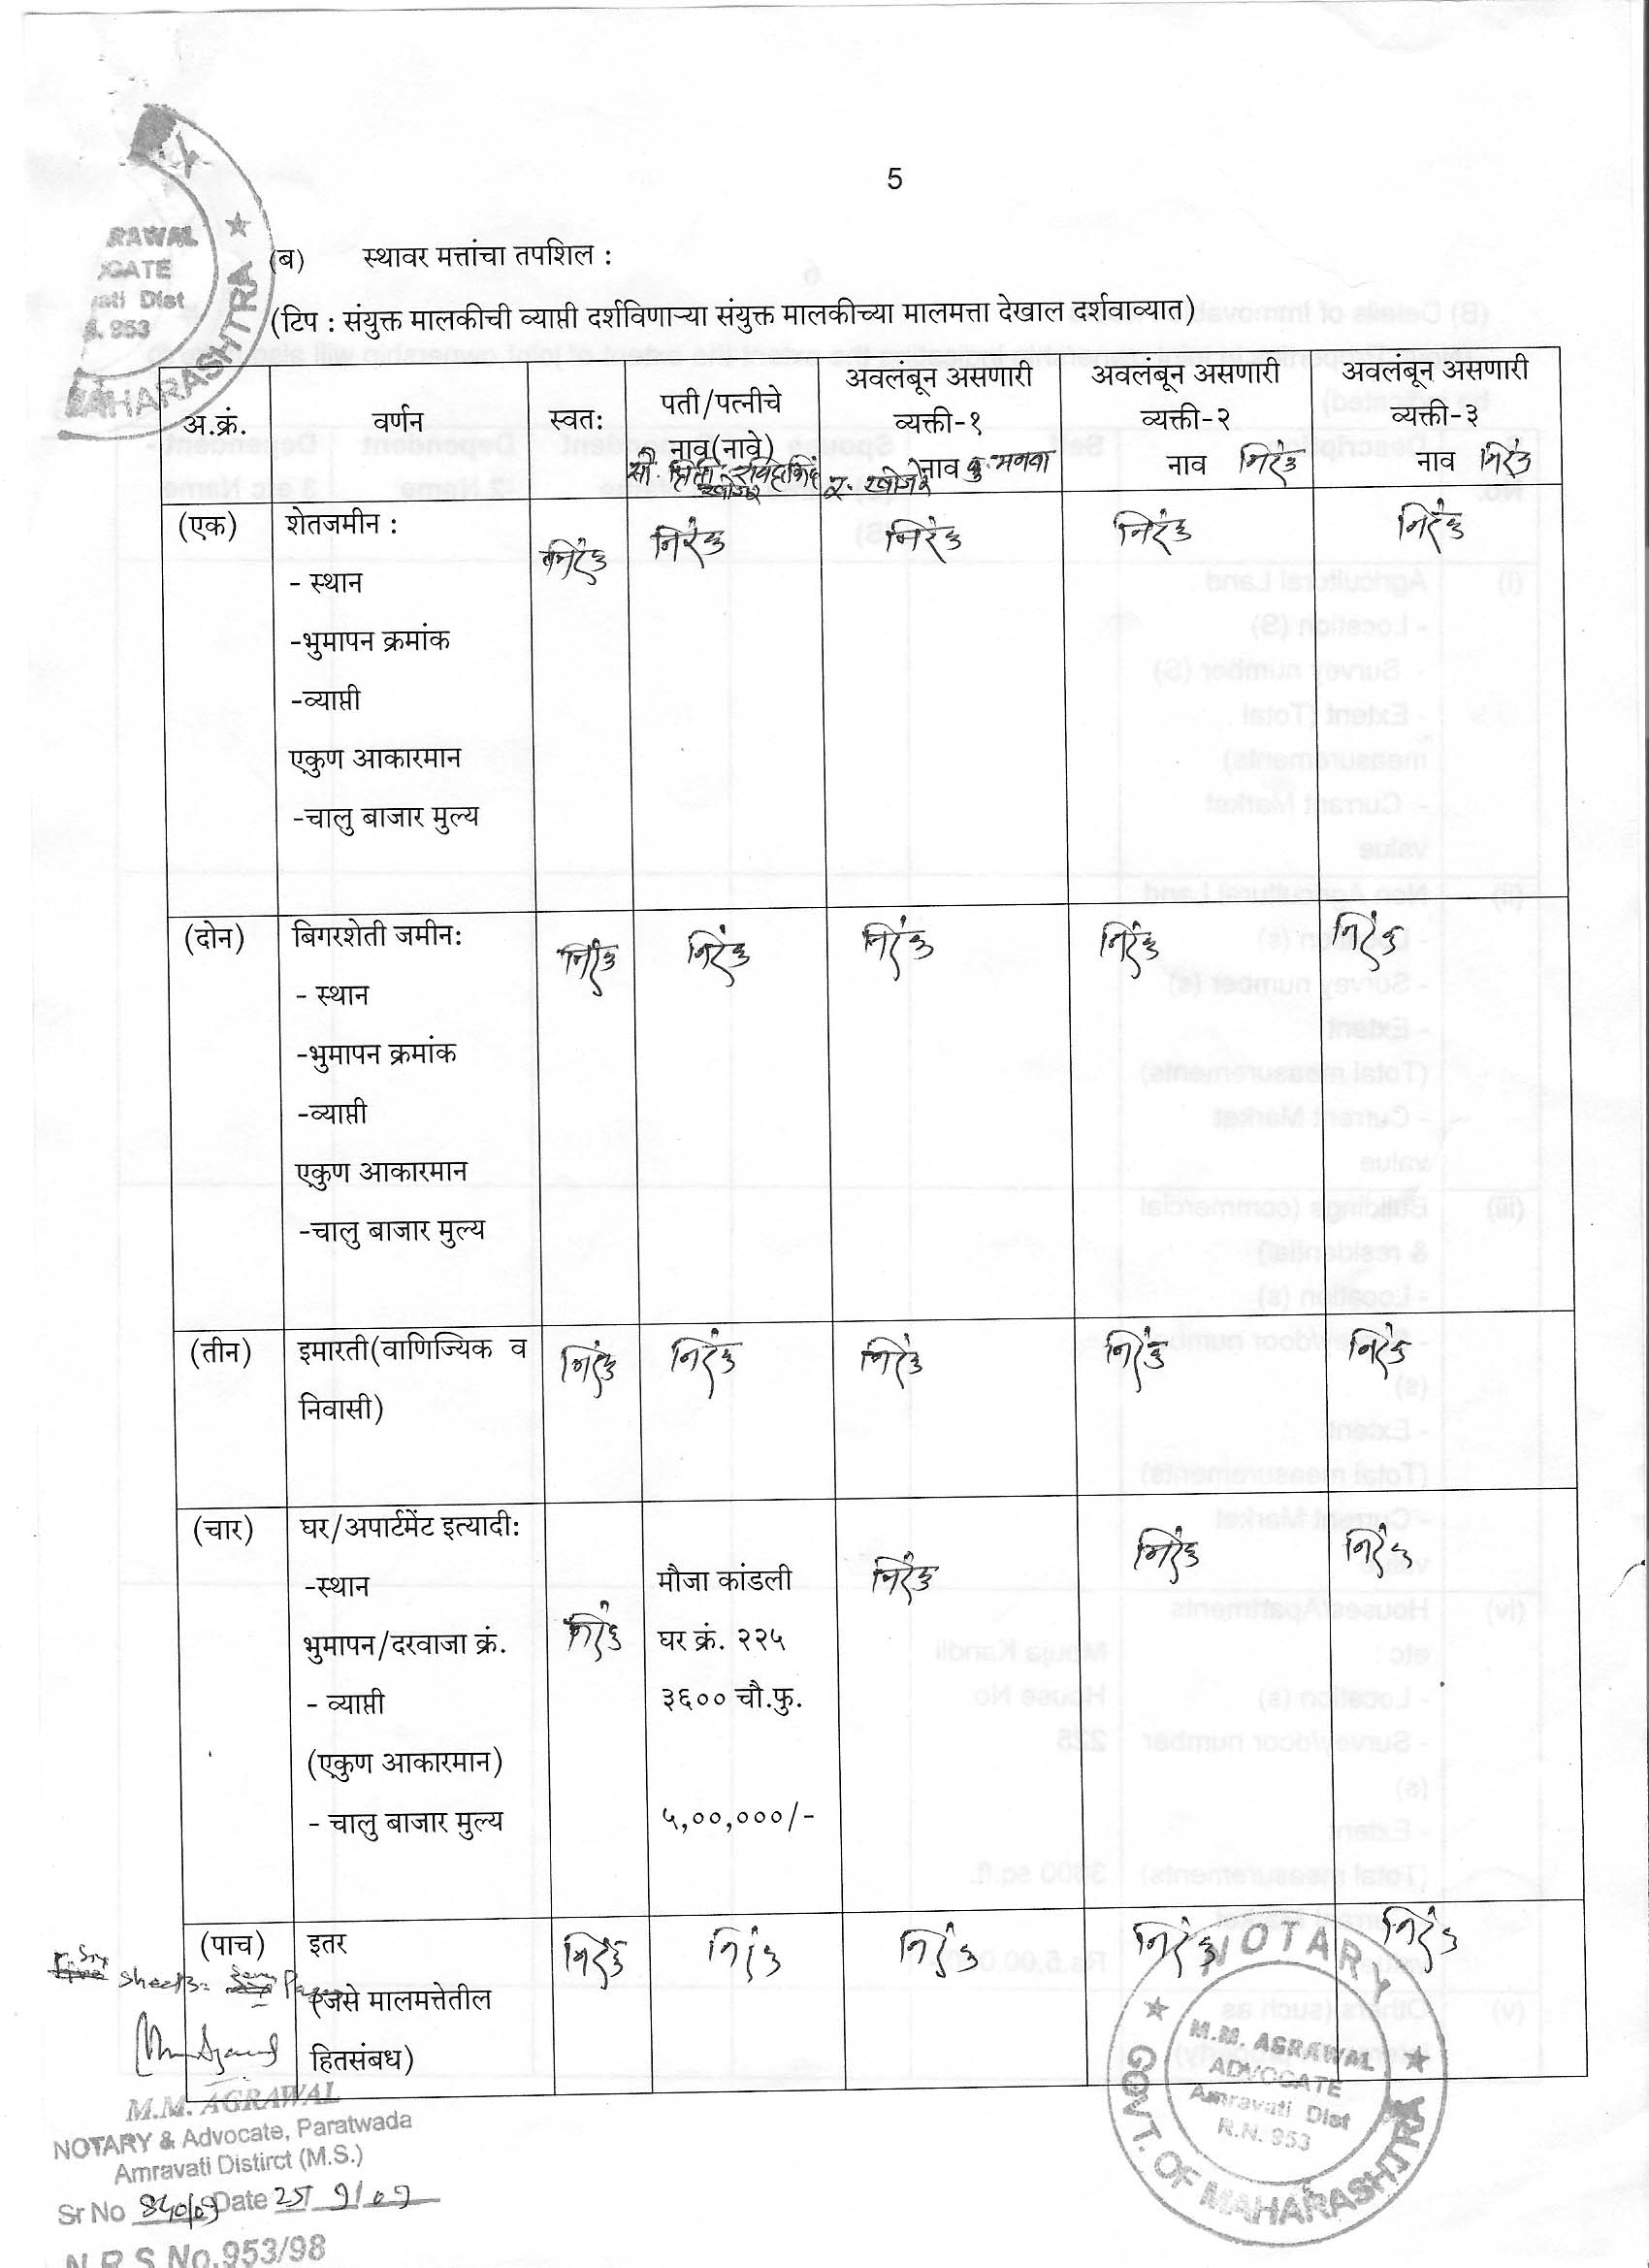 5
(ब) स्थावर मत्तांचा तपशिल :
(टिप : संयुक्त मालकीची व्याप्ती दर्शविणाऱ्या संयुक्त मालकीच्या मालमत्ता देखाल दर्शवाव्यात)
RAWAL
GATE
vati Dist
953
MAHARASHTRA
अ.क्रं. वर्णन स्वतः पती/पत्नीचे नाव(नावे) अवलंबून असणारी व्यक्ती-१ नाव अवलंबून असणारी व्यक्ती-२ नाव निरंक अवलंबून असणारी व्यक्ती-३ नाव निरंक
सौ. खोजरे
कु. र. खोजरे
(एक) शेतजमीन : निरंक निरंक निरंक निरंक निरंक
- स्थान
-भुमापन क्रमांक
-व्याप्ती
एकुण आकारमान
-चालु बाजार मुल्य
(दोन) बिगरशेती जमीन: निरंक निरंक निरंक निरंक निरंक
- स्थान
-भुमापन क्रमांक
-व्याप्ती
एकुण आकारमान
-चालु बाजार मुल्य
(तीन) इमारती(वाणिज्यिक व निरंक निरंक निरंक निरंक निरंक
निवासी)
(चार) घर/अपार्टमेंट इत्यादी: निरंक निरंक
-स्थान मौजा कांडली निरंक
भुमापन/दरवाजा क्रं. निरंक घर क्रं. २२५
- व्याप्ती ३६०० चौ.फु.
(एकुण आकारमान)
- चालु बाजार मुल्य ५,००,०००/-
(पाच) इतर निरंक निरंक निरंक निरंक निरंक
(जसे मालमत्तेतील
हितसंबध)
sheets
M.M. AGRAWAL
NOTARY & Advocate, Paratwada
Amravati Distirct (M.S.)
Sr No 840/09 Date 25/9/09
N.R.S.No.953/98
NOTARY
M.M. AGRAWAL
ADVOCATE
Amravati Dist
R.N. 953
GOVT. OF MAHARASHTRA